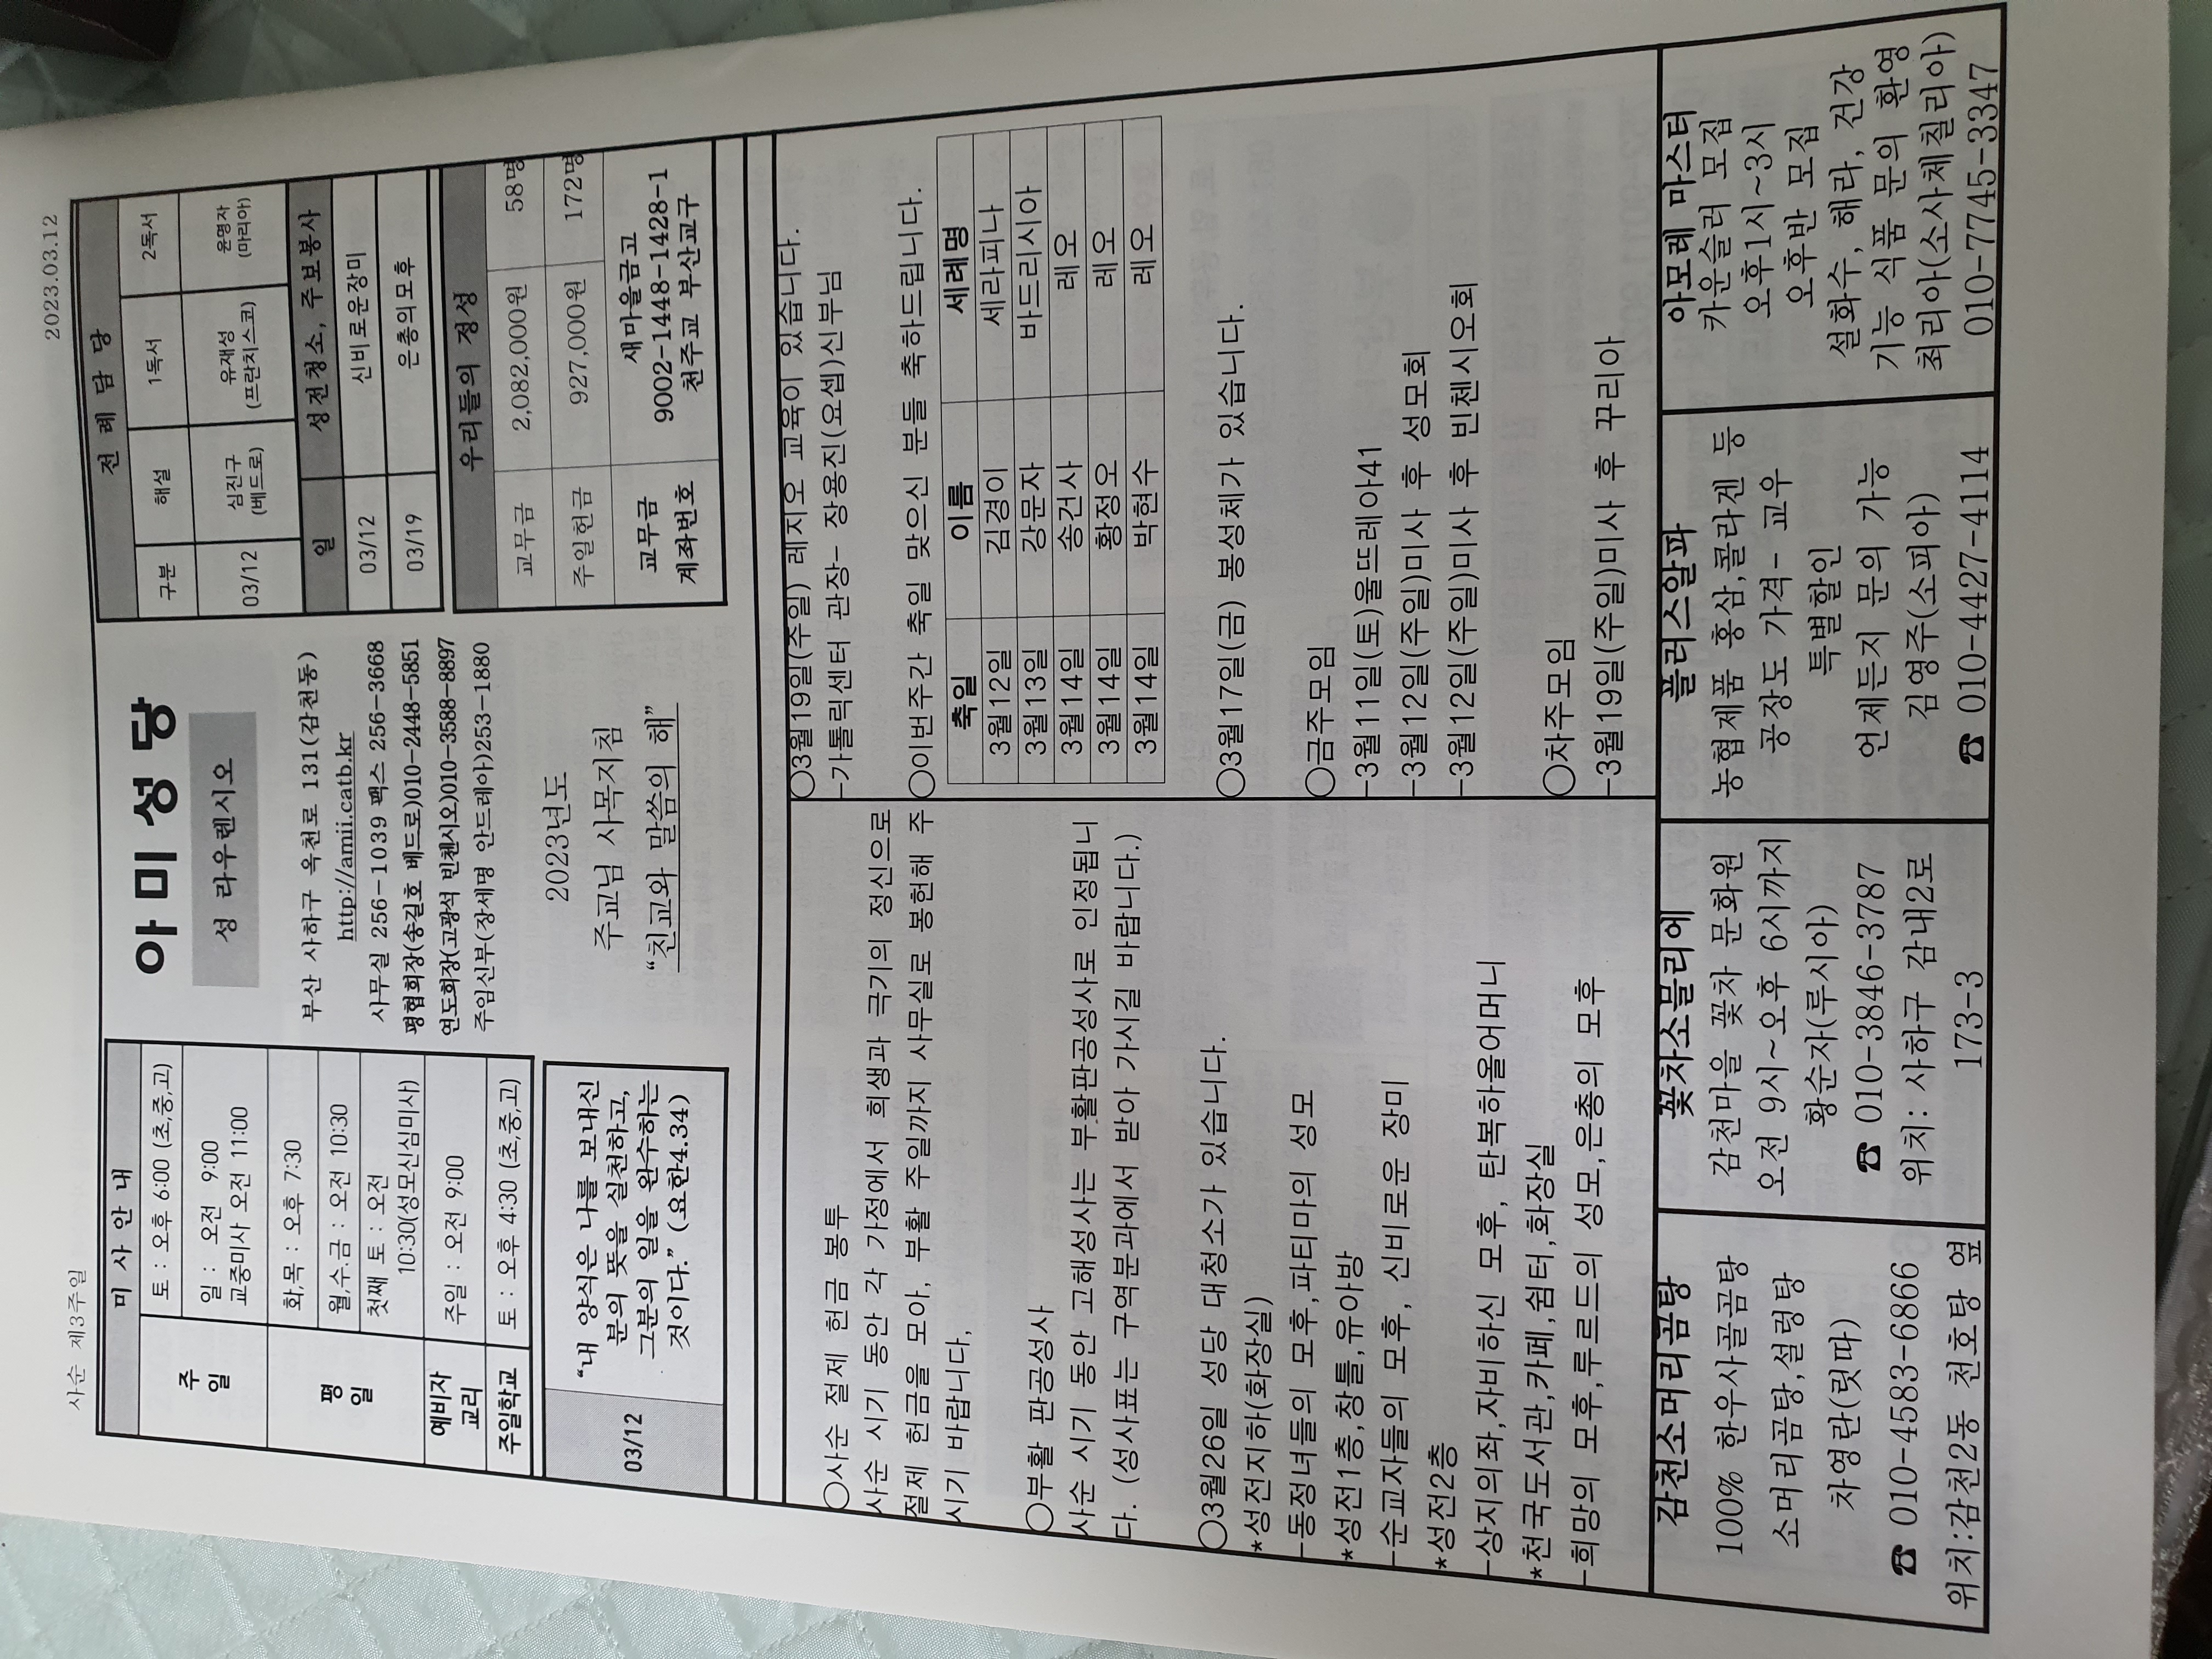 사순 제3주일
2023.03.12
미 사 안 내
주일
토 : 오후 6:00 (초,중,고)
일 : 오전 9:00
교중미사 오전 11:00
평일
화,목 : 오후 7:30
월,수.금 : 오전 10:30
첫째 토 : 오전
10:30(성모신심미사)
예비자 교리
주일 : 오전 9:00
주일학교
토 : 오후 4:30 (초,중,고)
03/12
“내 양식은 나를 보내신
분의 뜻을 실천하고,
그분의 일을 완수하는
것이다.” (요한4.34)
아미성당
성 라우렌시오
부산 사하구 옥천로 131(감천동)
http://amii.catb.kr
사무실 256-1039 팩스 256-3668
평협회장(송길호 베드로)010-2448-5851
연도회장(고광석 빈첸시오)010-3588-8897
주임신부(장세명 안드레아)253-1880
2023년도
주교님 사목지침
“친교와 말씀의 해”
전 례 담 당
구분 해설 1독서 2독서
03/12 심진구 (베드로) 유재성 (프란치스코) 윤명자 (마리아)
일 성전청소, 주보봉사
03/12 신비로운장미
03/19 은총의모후
우리들의 정성
교무금 2,082,000원 58명
주일헌금 927,000원 172명
교무금 계좌번호
새마을금고
9002-1448-1428-1
천주교 부산교구
○사순 절제 헌금 봉투
사순 시기 동안 각 가정에서 희생과 극기의 정신으로
절제 헌금을 모아, 부활 주일까지 사무실로 봉헌해 주
시기 바랍니다,
○부활 판공성사
사순 시기 동안 고해성사는 부활판공성사로 인정됩니
다. (성사표는 구역분과에서 받아 가시길 바랍니다.)
○3월26일 성당 대청소가 있습니다.
*성전지하(화장실)
-동정녀들의 모후,파티마의 성모
*성전1층,창틀,유아방
-순교자들의 모후, 신비로운 장미
*성전2층
-상지의좌,자비하신 모후, 탄복하올어머니
*천국도서관,카페,쉼터,화장실
-희망의 모후,루르드의 성모,은총의 모후
○3월19일(주일) 레지오 교육이 있습니다.
-가톨릭센터 관장- 장용진(요셉)신부님
○이번주간 축일 맞으신 분들 축하드립니다.
축일 이름 세례명
3월12일 김경이 세라피나
3월13일 강문자 바드리시아
3월14일 송건사 레오
3월14일 황정오 레오
3월14일 박현수 레오
○3월17일(금) 봉성체가 있습니다.
○금주모임
-3월11일(토)울뜨레아41
-3월12일(주일)미사 후 성모회
-3월12일(주일)미사 후 빈첸시오회
○차주모임
-3월19일(주일)미사 후 꾸리아
감천소머리곰탕
100% 한우사골곰탕
소머리곰탕,설렁탕
차영란(릿따)
☎ 010-4583-6866
위치:감천2동 천호탕 옆
꽃차소믈리에
감천마을 꽃차 문화원
오전 9시~오후 6시까지
황순자(루시아)
☎ 010-3846-3787
위치: 사하구 감내2로
173-3
플러스알파
농협제품 홍삼,콜라겐 등
공장도 가격- 교우
특별할인
언제든지 문의 가능
김영주(소피아)
☎ 010-4427-4114
아모레 마스터
카운슬러 모집
오후1시~3시
오후반 모집
설화수, 헤라, 건강
기능 식품 문의 환영
최리아(소사체칠리아)
010-7745-3347